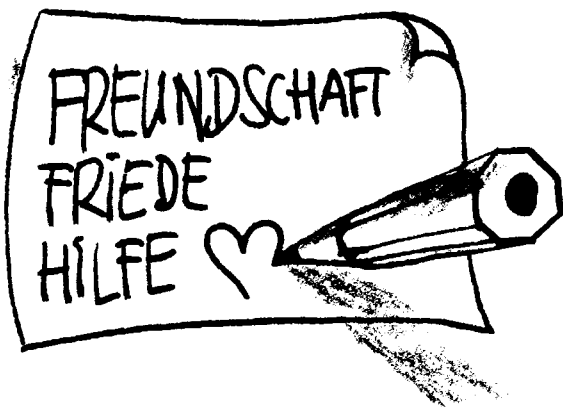 FREUNDSCHAFT
FRiEDE
HiLFE